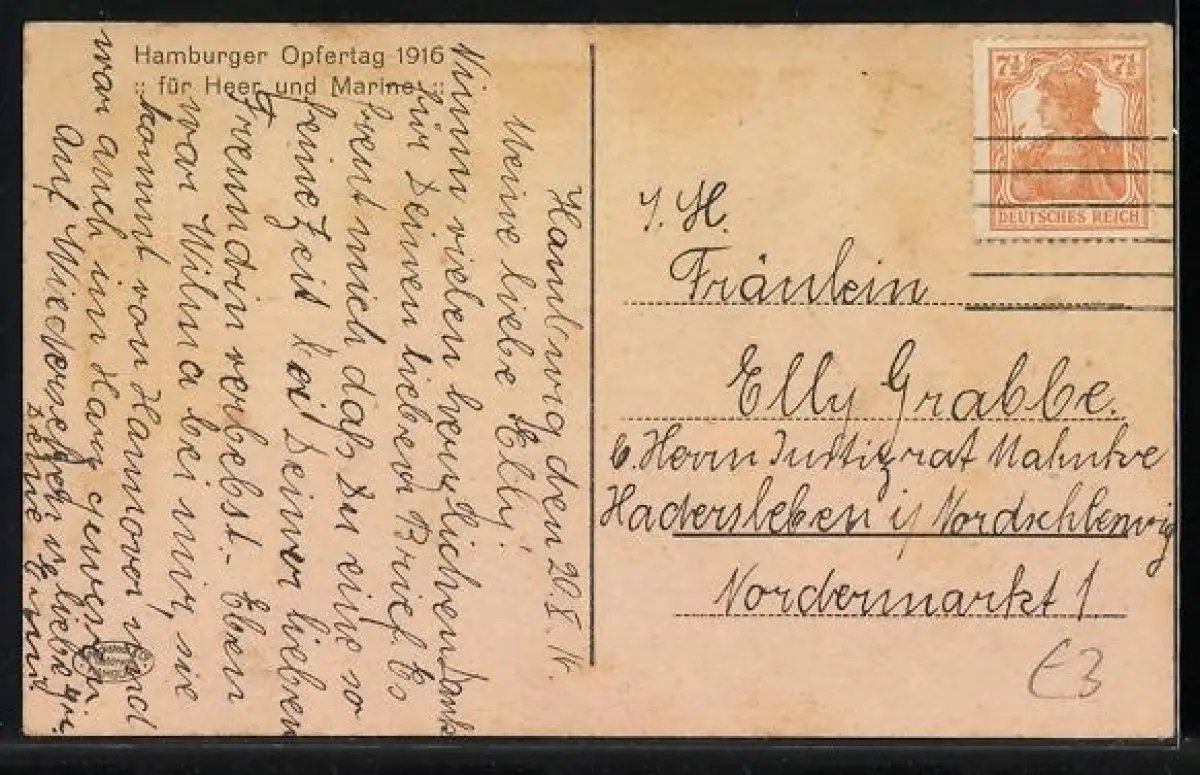 Hamburger Opfertag 1916
:: für Heer und Marine ::
Hamburg den 20.X.16.
Meine liebe Elly!
Nimm vielen herzlichen Dank
für Deinen lieben Brief. Es
freut mich daß Du eine so
feine Zeit bei Deiner lieben
Freundin verlebst. - Eben
war Wilma bei mir, sie
kommt von Hannover und
war auch im Harz gewesen
Auf Wiedersehen u. liebe Gr.
Deine Erna.
7½ 7½
DEUTSCHES REICH
I. H.
Fräulein
Elly Grabbe.
b. Herrn Justizrat Mahnke
Hadersleben i/ Nordschleswig
Nordermarkt 1
E3